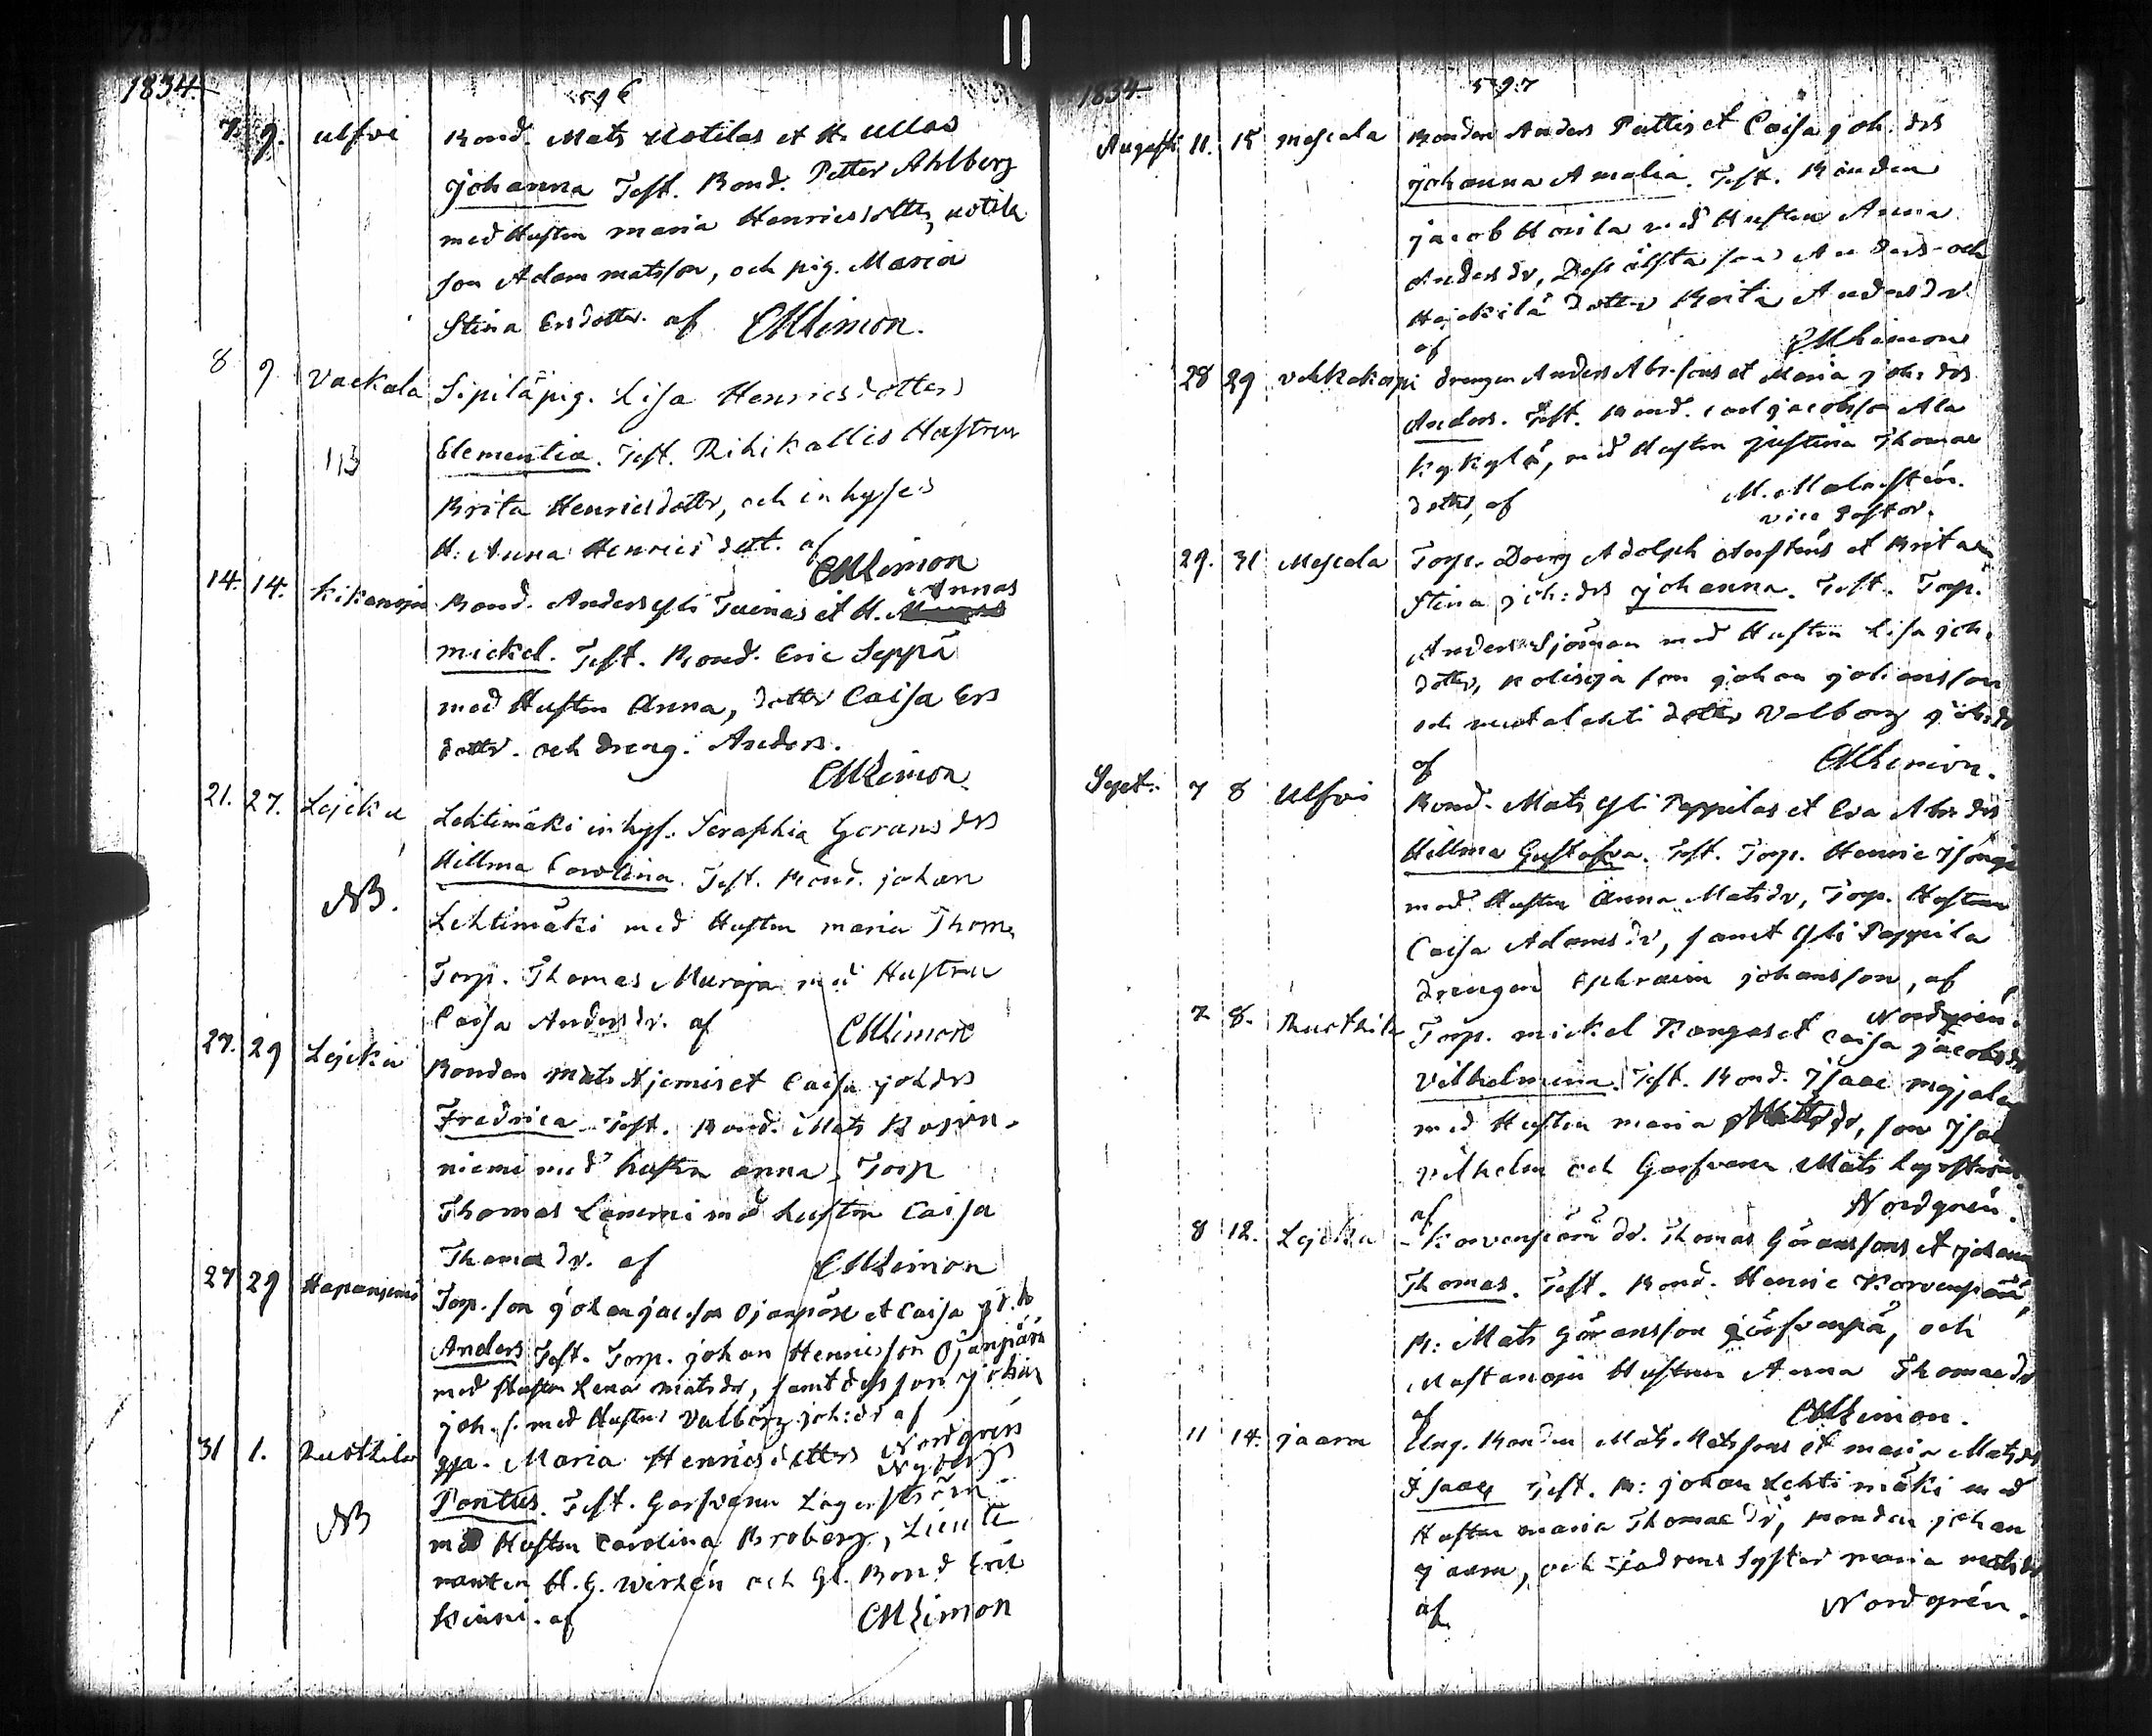 1834.
596
7. 9. Ulfvi Bond. Mats Uotilas et H. Ullas
Johanna Test. Bond. Petter Ahlberg
med Hustru Maria Henricsdotter, Uotila
son Adam Matsson, och pig. Maria
Stina Ersdotter. af CMLimon.
8 9 Vackala Sipilä pig. Lisa Henricsdotters
NB Clementia. Test. Rihikallio Hustrun
Brita Henricsdotter, och inhyses
H. Anna Henrics dott. af
CMLimon
14. 14. Kikanoja Bond. Anders Yli Tuinas et H. Annas
Mickel. Test. Bond. Eric Seppä
med Hustru Anna, dotter Caisa Ers
dotter. och dreng. Anders.
CMLimon.
21. 27. Lejcku Lehtimäki inhys. Seraphia Göransdrs
Hillma Carolina. Test. Bond. Johan
NB. Lehtimäki med Hustru Maria Thom.
Torp. Thomas Muroja med Hustru
Caisa Andersdr. af CMLimon
27. 29 Lejcku Bonden Mats Njemis et Caisa Johdrs
Fredrica Test. Bond. Mats
niemi med hustru Anna, Torp
Thomas Laniemi med hustru Caisa
Thomædr. af CMLimon
27 29 Hapaniemi Torp. son Johan Jac.son Ojanpää et Caisa
Anders Test. Torp. Johan Henricsson Ojanpää
med Hustru Lena Matsdr, samt dess son Johan
Joh. s. med Hustru Valborg Joh:dr af
Nordgrén
31 1. Rusthila pga. Maria Henricsdotters Nyberg
Pontus. Test. Garfvaren Lagerström
NB med Hustru Carolina Broberg, Lieute
nanten H. G. Wirzén och Gl. Bond Eric
af CMLimon
1834
597
Augusti 11. 15 Mascala Bonden Anders Pettis et Caisa Joh. drs
Johanna Amalia. Test. Bonden
Jacob Honila med Hustru Anna
Andersdr, Dess älsta son Anders och
Hejckilä dotter Brita Andersdr
af CMLimon
28 29 Vehkakorpi drengen Anders Abr.sons et Maria Joh: drs
Anders. Test. Bond. Carl Jacobsson Ala
Kykylä, med Hustru Justina Thomæ
dotter, af M. Malmstén.
vice Pastor.
29. 31 Mascala Torp. Dreng Adolph Austéns et Brita
Stina Joh: drs Johanna. Test. Torp.
Anders Sjöman med Hustru Lisa Joh.
dotter, Kolisoja son Johan Johansson
och dotter Valborg Joh:dr
af CMLimon.
Sept. 7 8 Ulfvi Bond. Mats Yli Pappilas et Eva Abr. drs
Hillma Gustafva. Test. Torp. Henric Isonoja
med Hustru Anna Matsdr, Torp. Hustrun
Caisa Adamsdr, samt Yli Pappila
drengen Ephraim Johansson, af
Nordgrén.
7 8. Rusthila Torp. Mickel Kangas et Caisa Jacobsdr
Vilhelmina. Test. Bond. Isaac
med Hustru Maria Mattsdr, son Isaac
Vilhelm och Garfvaren Mats Lagerström
af Nordgrén.
8 12. Lejcku Korvenpää dr. Thomas Göranssons et Johan
Thomas. Test. Bond. Henric Korvenpää,
B: Mats Göransson och
Mastanoja Hustrun Anna Thomædr
af CMLimon.
11 14. Jaara Ung. Bonden Mats Matssons et Maria Matsdr
Isaac Test. B: Johan Lehtimäki med
Hustru Maria Thomædr, Bonden Johan
Jaara, och Fadrens Syster Maria Matsdr
af Nordgrén.